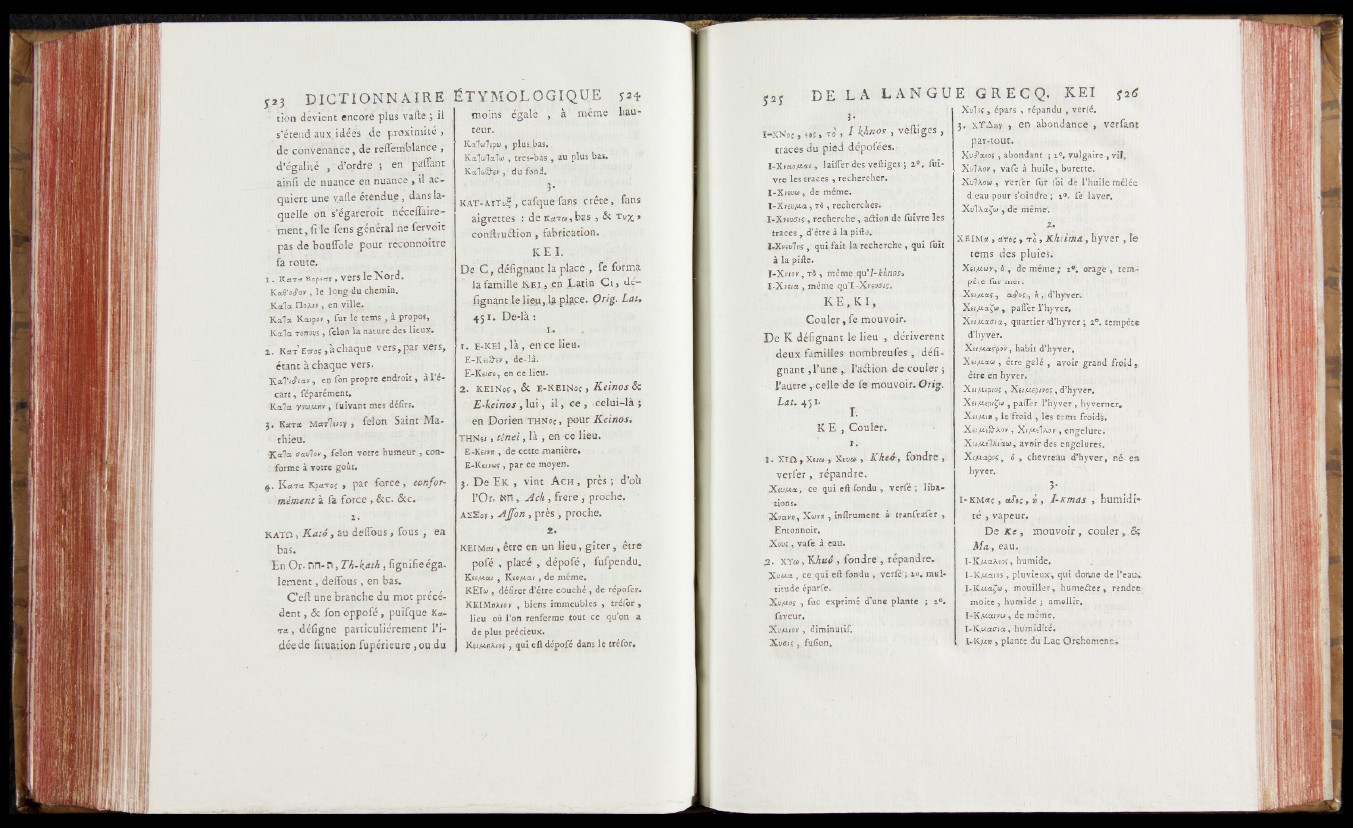 523 DICTIONNAIRE ÉTYMOLOGIQUE 524
tion devient encore plus vaſte ; il
s'étend aux idées de proximité ,
de convenance , de reſſemblance ,
d'égalité , d'ordre ; en paſſant
ainſi de nuance en nuance , il ac-
quiert une vaſte étendue , dans la-
quelle on s'égareroit néceſſaire-
ment , ſi le ſens général ne ſervoit
pas de bouſſole pour reconnoître
ſa route.
1. Κατα Βορεαν , vers le Nord.
Καθ'οδον , le long du chemin.
Καlα Πολιν , en ville.
Καlα Καιρον , ſur le tems , à propos,
Καlα τοπους , ſelon la nature des lieux.
2. Κατ' Επος , à chaque vers, par vers,
étant à chaque vers.
Καl'ιδιαν , en ſon propre endroit , à l'é-
cart , ſéparément.
Καlα γνωμην , ſuivant mes déſirs.
3. Κατα Ματlαιον , ſelon Saint Ma-
thieu.
Καlα σαυlον , ſelon votre humeur , con-
forme à votre goût.
4. Κατα Κρατος , par force , confor-
mément à ſa force , &c. &c.
2.
ΚΑΤΩ , Kató , au deſſous , ſous , en
bas.
En Or. תחת-ח , Th-kath , ſignifie éga-
lement , deſſous , en bas.
C'eſt une branche du mot précé-
dent , & ſon oppoſé , puiſque Κα-
τα , déſigne particuliérement l'i-
dée de ſituation ſupérieure , ou du
moins égale , à même hau-
teur.
Καlωlερω , plus bas.
Καlωlαlω , tres-bas , au plus bas.
Καlωθεν , du fond.
3.
ΚΑΤ-ΑΙΤυξ , caſque ſans crête , ſans
aigrettes : de Κατω , bas , & Τυχ ,
conſtruction , fabrication.
KEI.
De C , déſignant la place , ſe forma
la famille KEI , en Latin CI , dé-
ſignant le lieu, la place. Orig. Lat.
451. De-là :
1.
1. Ε-ΚΕΙ , là , en ce lieu.
Ε-Κειθεν , de-là.
Ε-Κεισε , en ce lieu.
2. ΚΕΙΝος , & Ε-ΚΕΙΝος , Keinos &
E-keinos , lui , il , ce , celui-là ;
en Dorien ΤΗΝος , pour Keinos.
ΤΗΝει , ténei , là , en ce lieu.
Ε-Κεινη , de cette maniére.
Ε-Κεινως , par ce moyen.
3. De EK , vint ACH , près ; d'où
l'Or. אח , Ach , frere , proche.
ΑΣΣον , Aſſon , près , proche.
2.
ΚΕΙΜαι , être en un lieu , gîter , être
poſé , placé , dépoſé , ſuſpendu.
Κεεμαι , Κεομαι , de même.
ΚΕΙω , déſirer d'être couché , de répoſer.
ΚΕΙΜηλιον , biens immeubles , tréſor ,
lieu où l'on renferme tout ce qu'on a
de plus précieux.
Κειμηλιος , qui eſt dépoſé dans le tréſor.
525 DE LA LANGUE GRECQ. KEI 526
3.
Ι-ΧΝος , εος , τὸ , I khnos , veſtiges ,
traces du pied dépoſées.
Ι-Χναομαι , laiſſer des veſtiges ; 2°. ſui-
vre les traces , rechercher.
Ι-Χνευω , de même.
Ι-Χνευμα , τὸ , rechercher.
Ι-Χνευσις , recherche , action de ſuivre les
traces , d'être à la piſte.
Ι-Χνευlης , qui fait la recherche , qui ſuit
à la piſte.
Ι-Χνιον , τὸ , même qu'I-khnos.
Ι-Χνεια , même qu'Ι-Χνευσις.
KE , KI ,
Couler , ſe mouvoir.
De K déſignant le lieu , dériverent
deux familles nombreuſes , déſi-
gnant , l'une , l'action de couler ;
l'autre , celle de ſe mouvoir. Orig.
Lat. 451.
I.
KE , Couler.
1.
1. ΧΕΩ , Χειω , Χευω , Kheó , fondre ,
verſer , répandre.
Χευμα , ce qui eſt fondu , verſé ; liba-
tions.
Χοανη , Χωνη , inſtrument à tranſraſer ,
Entonnoir.
Χους , vaſe à eau.
2. ΧΥω , Khuó , fondre , répandre.
Χυμα , ce qui eſt fondu , verſé ; 2°. mul-
titude éparſe.
Χυμος , ſuc exprimé d'une plante ; 2°.
ſaveur.
Χυμιον , diminutif.
Χυσις , fuſion.
Χυlος , épars , répandu , verſé.
3. ΧΥΔην , en abondance , verſant
par-tout.
Χυδαιος , abondant ; 2°. vulgaire , vil.
Χυlλον , vaſe à huile , burette.
Χυlλοω , verſer ſur ſoi de l'huile mêlée
d'eau pour s'oindre ; 2°. ſe laver.
Χυlλαζω , de même.
2.
ΧΕΙΜα , ατος , τὸ , Kheima , hyver , le
tems des pluies.
Χειμων , ὁ , de même ; 2°. orage , tem-
pête ſur mer.
Χειμας , αδος , ἡ , d'hyver.
Χειμαζω , paſſer l'hyver.
Χειμασια , quartier d'hyver ; 2°. tempête
d'hyver.
Χειμαςρον , habit d'hyver.
Χειμαω , être gelé , avoir grand froid ,
être en hyver.
Χειμεριος , Χειμερινος , d'hyver.
Χειμεριζω , paſſer l'hyver , hyverner.
Χειμιη , le froid , les tems froids.
Χειμεθλον , Χιμεlλον , engelure.
Χειμεlλιαω , avoir des engelures.
Χιμαρος , ὁ , chevreau d'hyver , né en
hyver.
3.
Ι-ΚΜας , αδος , ἡ , I-Kmas , humidi-
té , vapeur.
De Ke , mouvoir , couler , &
Ma , eau.
Ι-Κμαλεος , humide.
Ι-Κμαιος , pluvieux , qui donne de l'eau.
Ι-Κμαζω , mouiller , humecter , rendre
moite , humide ; amollir.
Ι-Κμαινω , de même.
Ι-Κμασια , humidité.
Ι-Κμη , plante du Lac Orchomene.